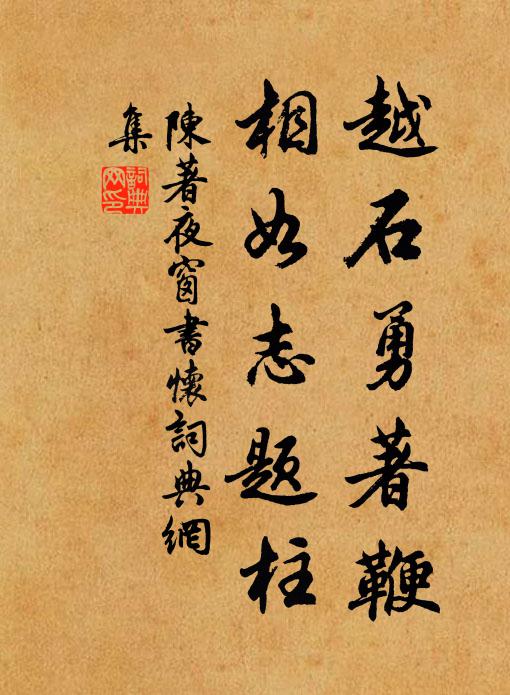 越石勇著鞭
相如志題柱
陳著夜窗書懷詞典網
集
詞典
网印